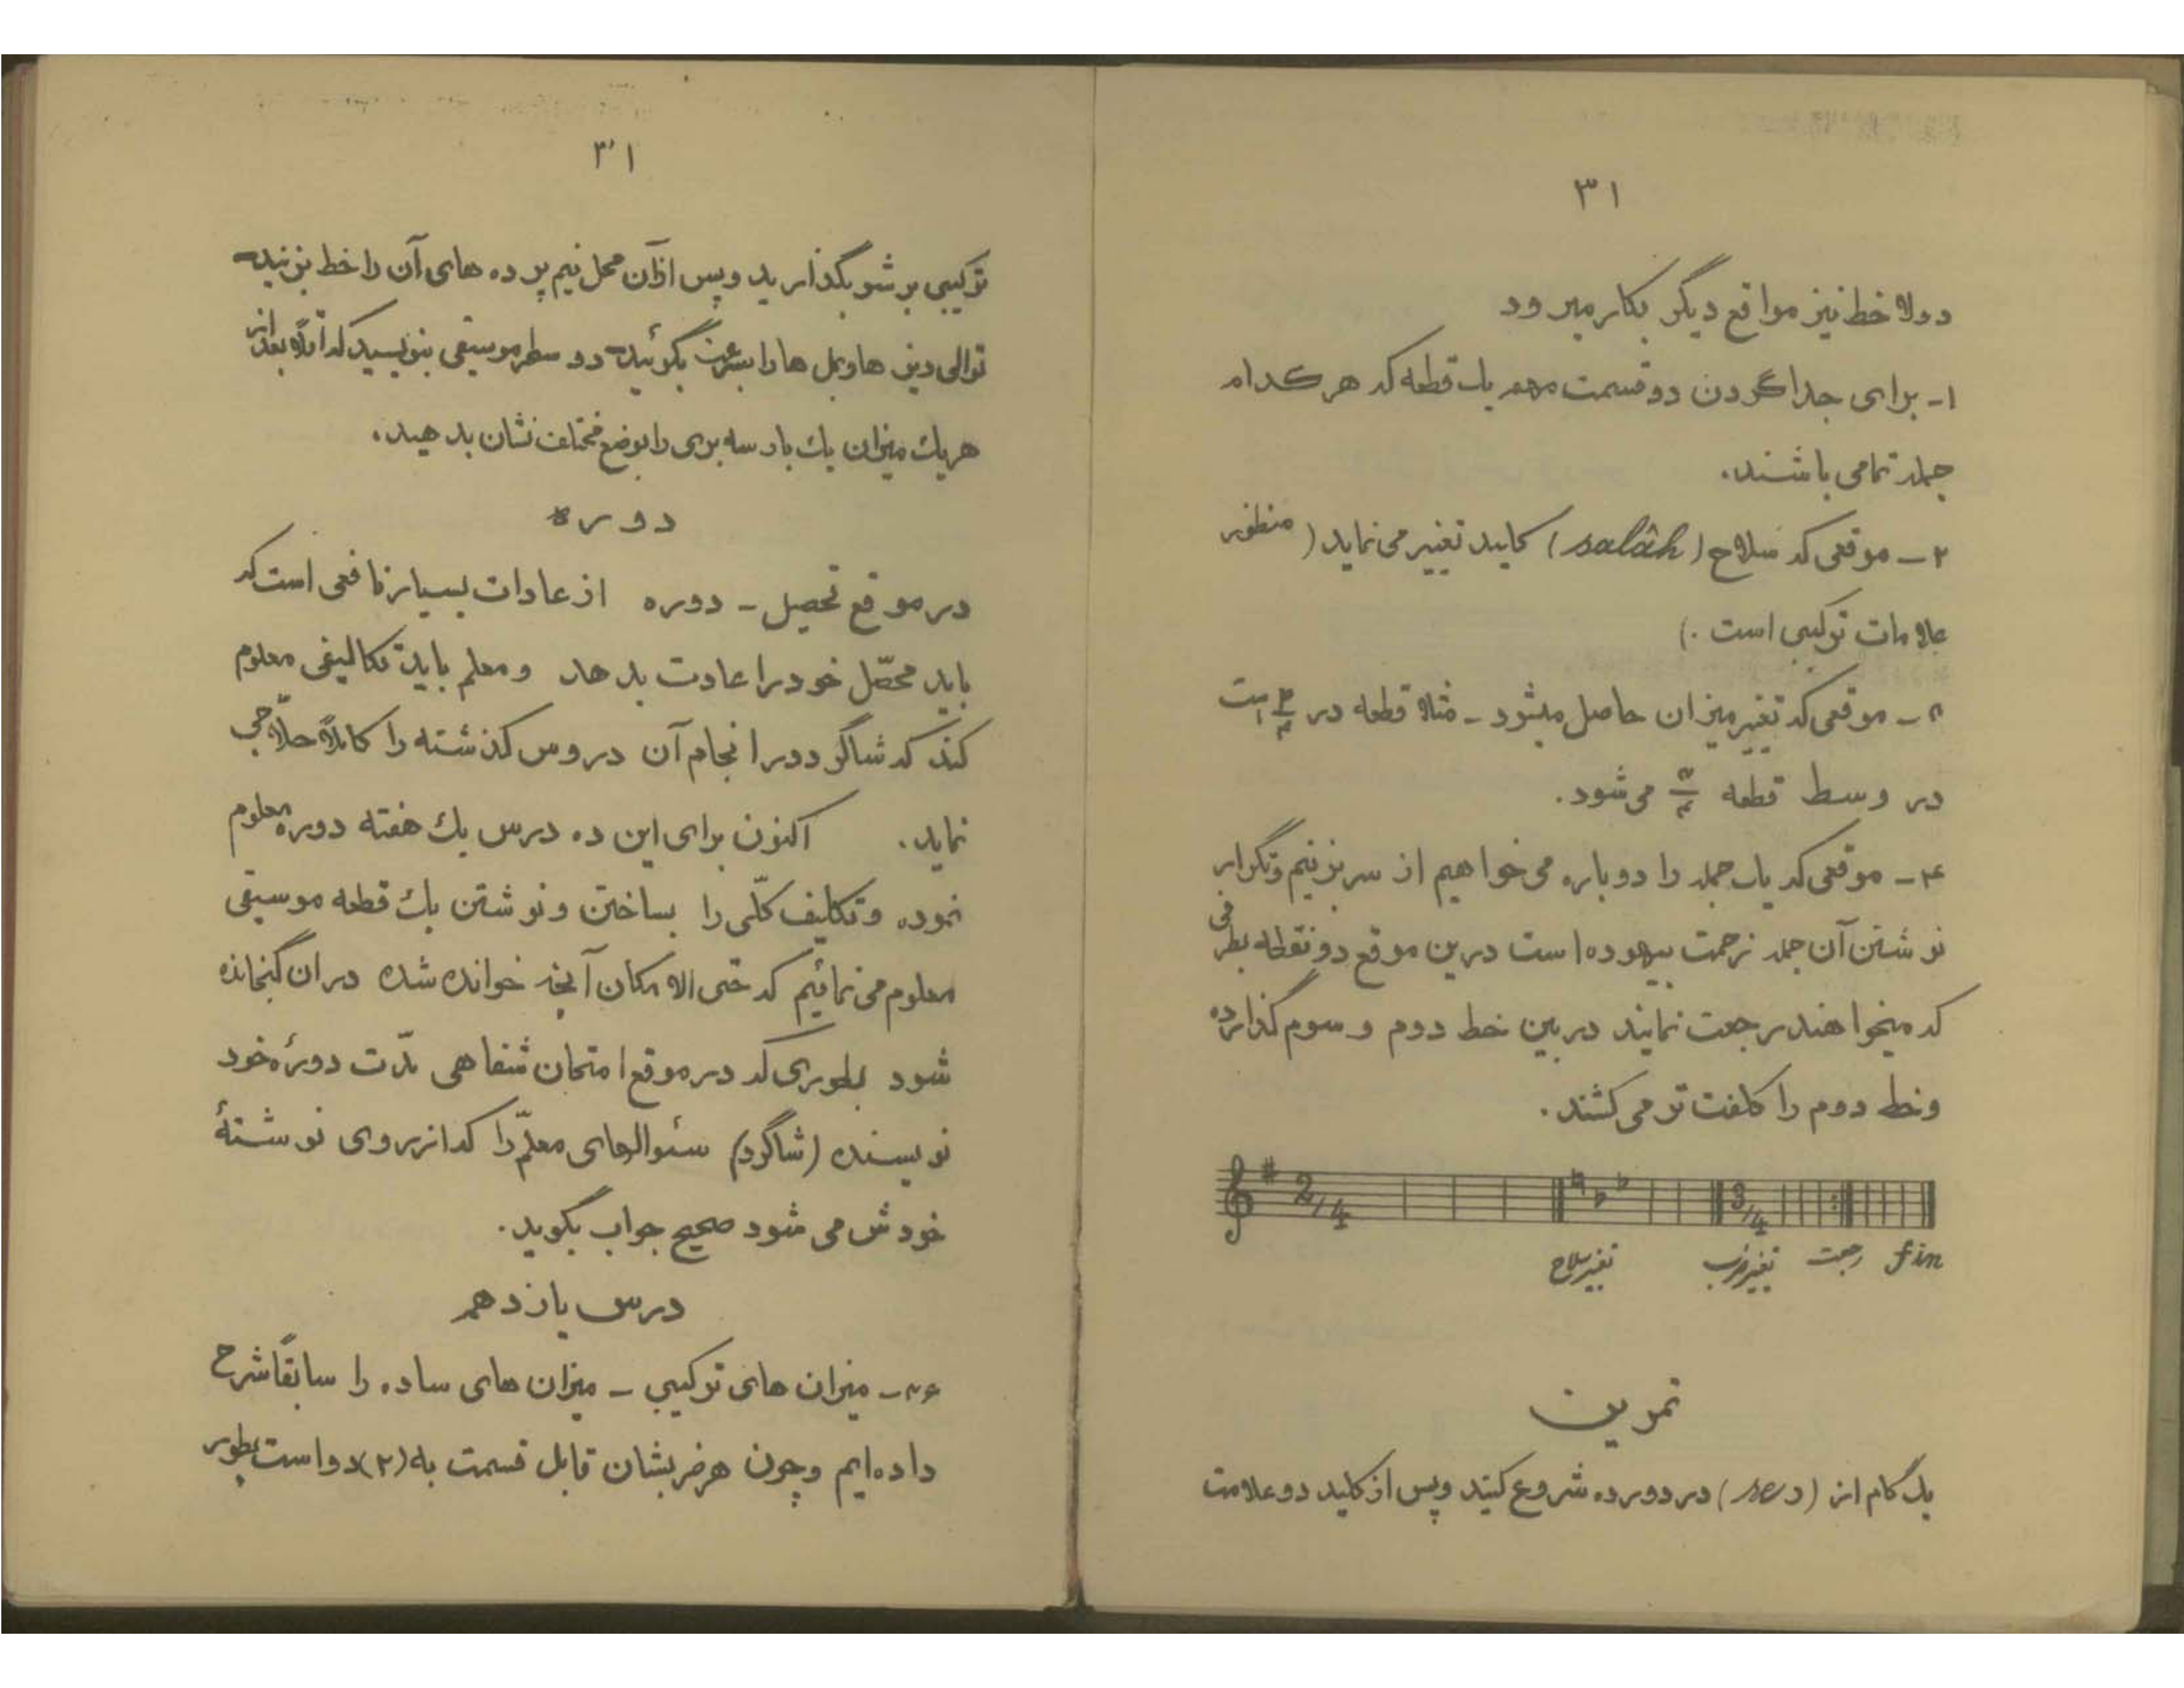 ۳۱
دولا خط نیز مواقع دیگر بکار میرود
۱- برای جدا کردن دو قسمت مهم یك قطعه که هر کدام
جمله تمامی باشند.
۲- موقعی که سلاح (salâh) کلید تغییر می نماید (منظور
علامات ترکیبی است.)
۳- موقعی که تغییر میزان حاصل میشود - مثلا قطعه در ۲/۴ است
در وسط قطعه ۳/۴ می شود.
۴- موقعی که یك جمله را دوباره می خواهیم از سر بزنیم و تکرار
نوشتن آن جمله زحمت بیهوده است درین موقع دو نقطه بطرفی
که میخواهند رجعت نمایند در بین خط دوم و سوم گذارده
و خط دوم را کلفت تر می کشند.
2/4 3/4
تغییر سلاح تغییر ضرب رجعت fin
تمرین
یك گام از (ر) در دو پرده شروع کنید و پس از کلید دو علامت
۳۱
ترکیبی بر شو بگذارید و پس ازان محل نیم پرده های آن را خط بزنید-
توالی دیز ها و بمل ها را بسرعت بگوئید- دو سطر موسیقی بنویسید که بعد از
هریك میزان یك بار سه بری را بوضع مختلف نشان بدهید.
دوره
در موقع تحصیل - دوره از عادات بسیار نافعی است که
باید محصّل خود را عادت بدهد و معلم باید تکالیفی معلوم
کند که شاگرد در انجام آن دروس گذشته را کاملاً حلاّجی
نماید. اکنون برای این ده درس یك هفته دوره معلوم
نموده و تکلیف کلّی را بساختن و نوشتن یك قطعه موسیقی
معلوم می نمائیم که حتی الامکان آنچه خوانده شده دران گنجانده
شود بطوری که در موقع امتحان شفاهی مدّت دورۀ خود
نویسنده (شاگرد) سئوالهای معلّم را که از روی نوشتۀ
خودش می شود صحیح جواب بگوید.
درس یازدهم
۳۶- میزان های ترکیبی - میزان های ساده را سابقاً شرح
داده ایم و چون هر ضربشان قابل قسمت به (۲) دو است بطور